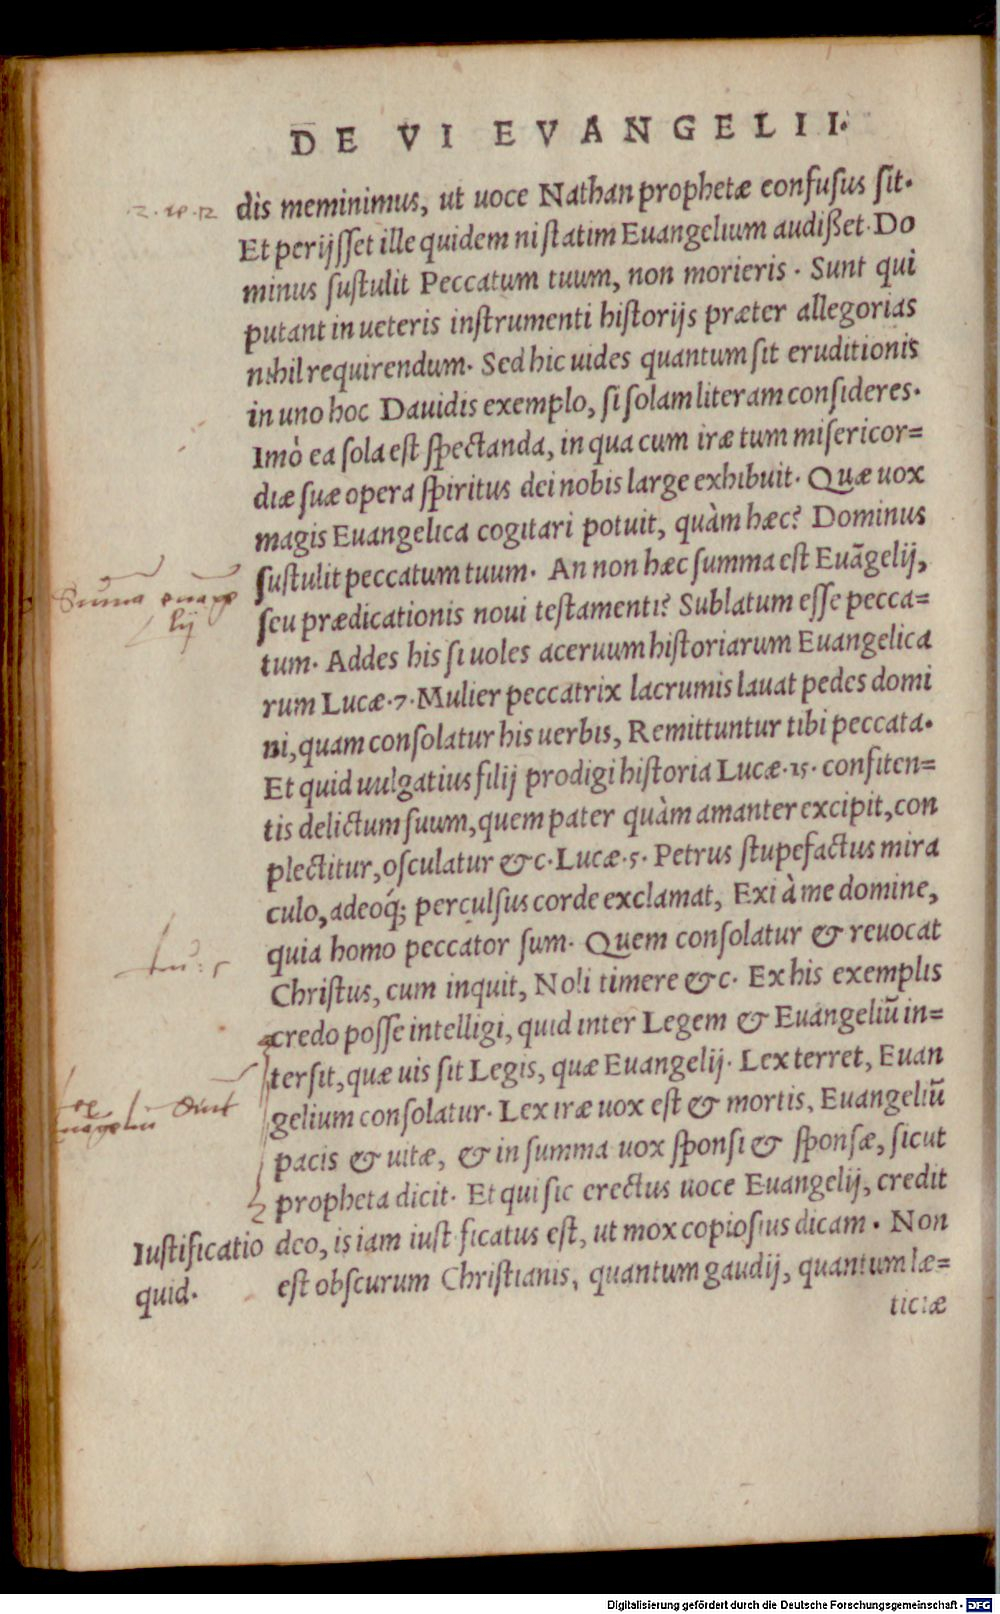 DE VI EVANGELII.
dis meminimus, ut uoce Nathan prophetæ confusus sit.
Et perijsset ille quidem ni statim Euangelium audißet. Do
minus sustulit Peccatum tuum, non morieris. Sunt qui
putant in ueteris instrumenti historijs præter allegorias
nihil requirendum. Sed hic uides quantum sit eruditionis
in uno hoc Dauidis exemplo, si solam literam consideres.
Imò ea sola est spectanda, in qua cum iræ tum misericor=
diæ suæ opera spiritus dei nobis large exhibuit. Quæ uox
magis Euangelica cogitari potuit, quàm hæc? Dominus
Summa euange
lij
sustulit peccatum tuum. An non hæc summa est Euãgelij,
seu prædicationis noui testamenti? Sublatum esse pecca=
tum. Addes his si uoles aceruum historiarum Euangelica
rum Lucæ.7. Mulier peccatrix lacrumis lauat pedes domi
ni, quam consolatur his uerbis, Remittuntur tibi peccata.
Et quid uulgatius filij prodigi historia Lucæ.15. confiten=
tis delictum suum, quem pater quàm amanter excipit, con
plectitur, osculatur &c. Lucæ.5. Petrus stupefactus mira
culo, adeoq́; perculsus corde exclamat, Exi à me domine,
Lu: 5
quia homo peccator sum. Quem consolatur & reuocat
Christus, cum inquit, Noli timere &c. Ex his exemplis
credo posse intelligi, quid inter Legem & Euangeliũ in=
tersit, quæ uis sit Legis, quæ Euangelij. Lex terret, Euan
gelium consolatur. Lex iræ uox est & mortis, Euangeliũ
pacis & uitæ, & in summa uox sponsi & sponsæ, sicut
propheta dicit. Et qui sic erectus uoce Euangelij, credit
Iustificatio
quid.
deo, is iam iustificatus est, ut mox copiosius dicam. Non
est obscurum Christianis, quantum gaudij, quantum læ=
ticiæ
Digitalisierung gefördert durch die Deutsche Forschungsgemeinschaft - DFG